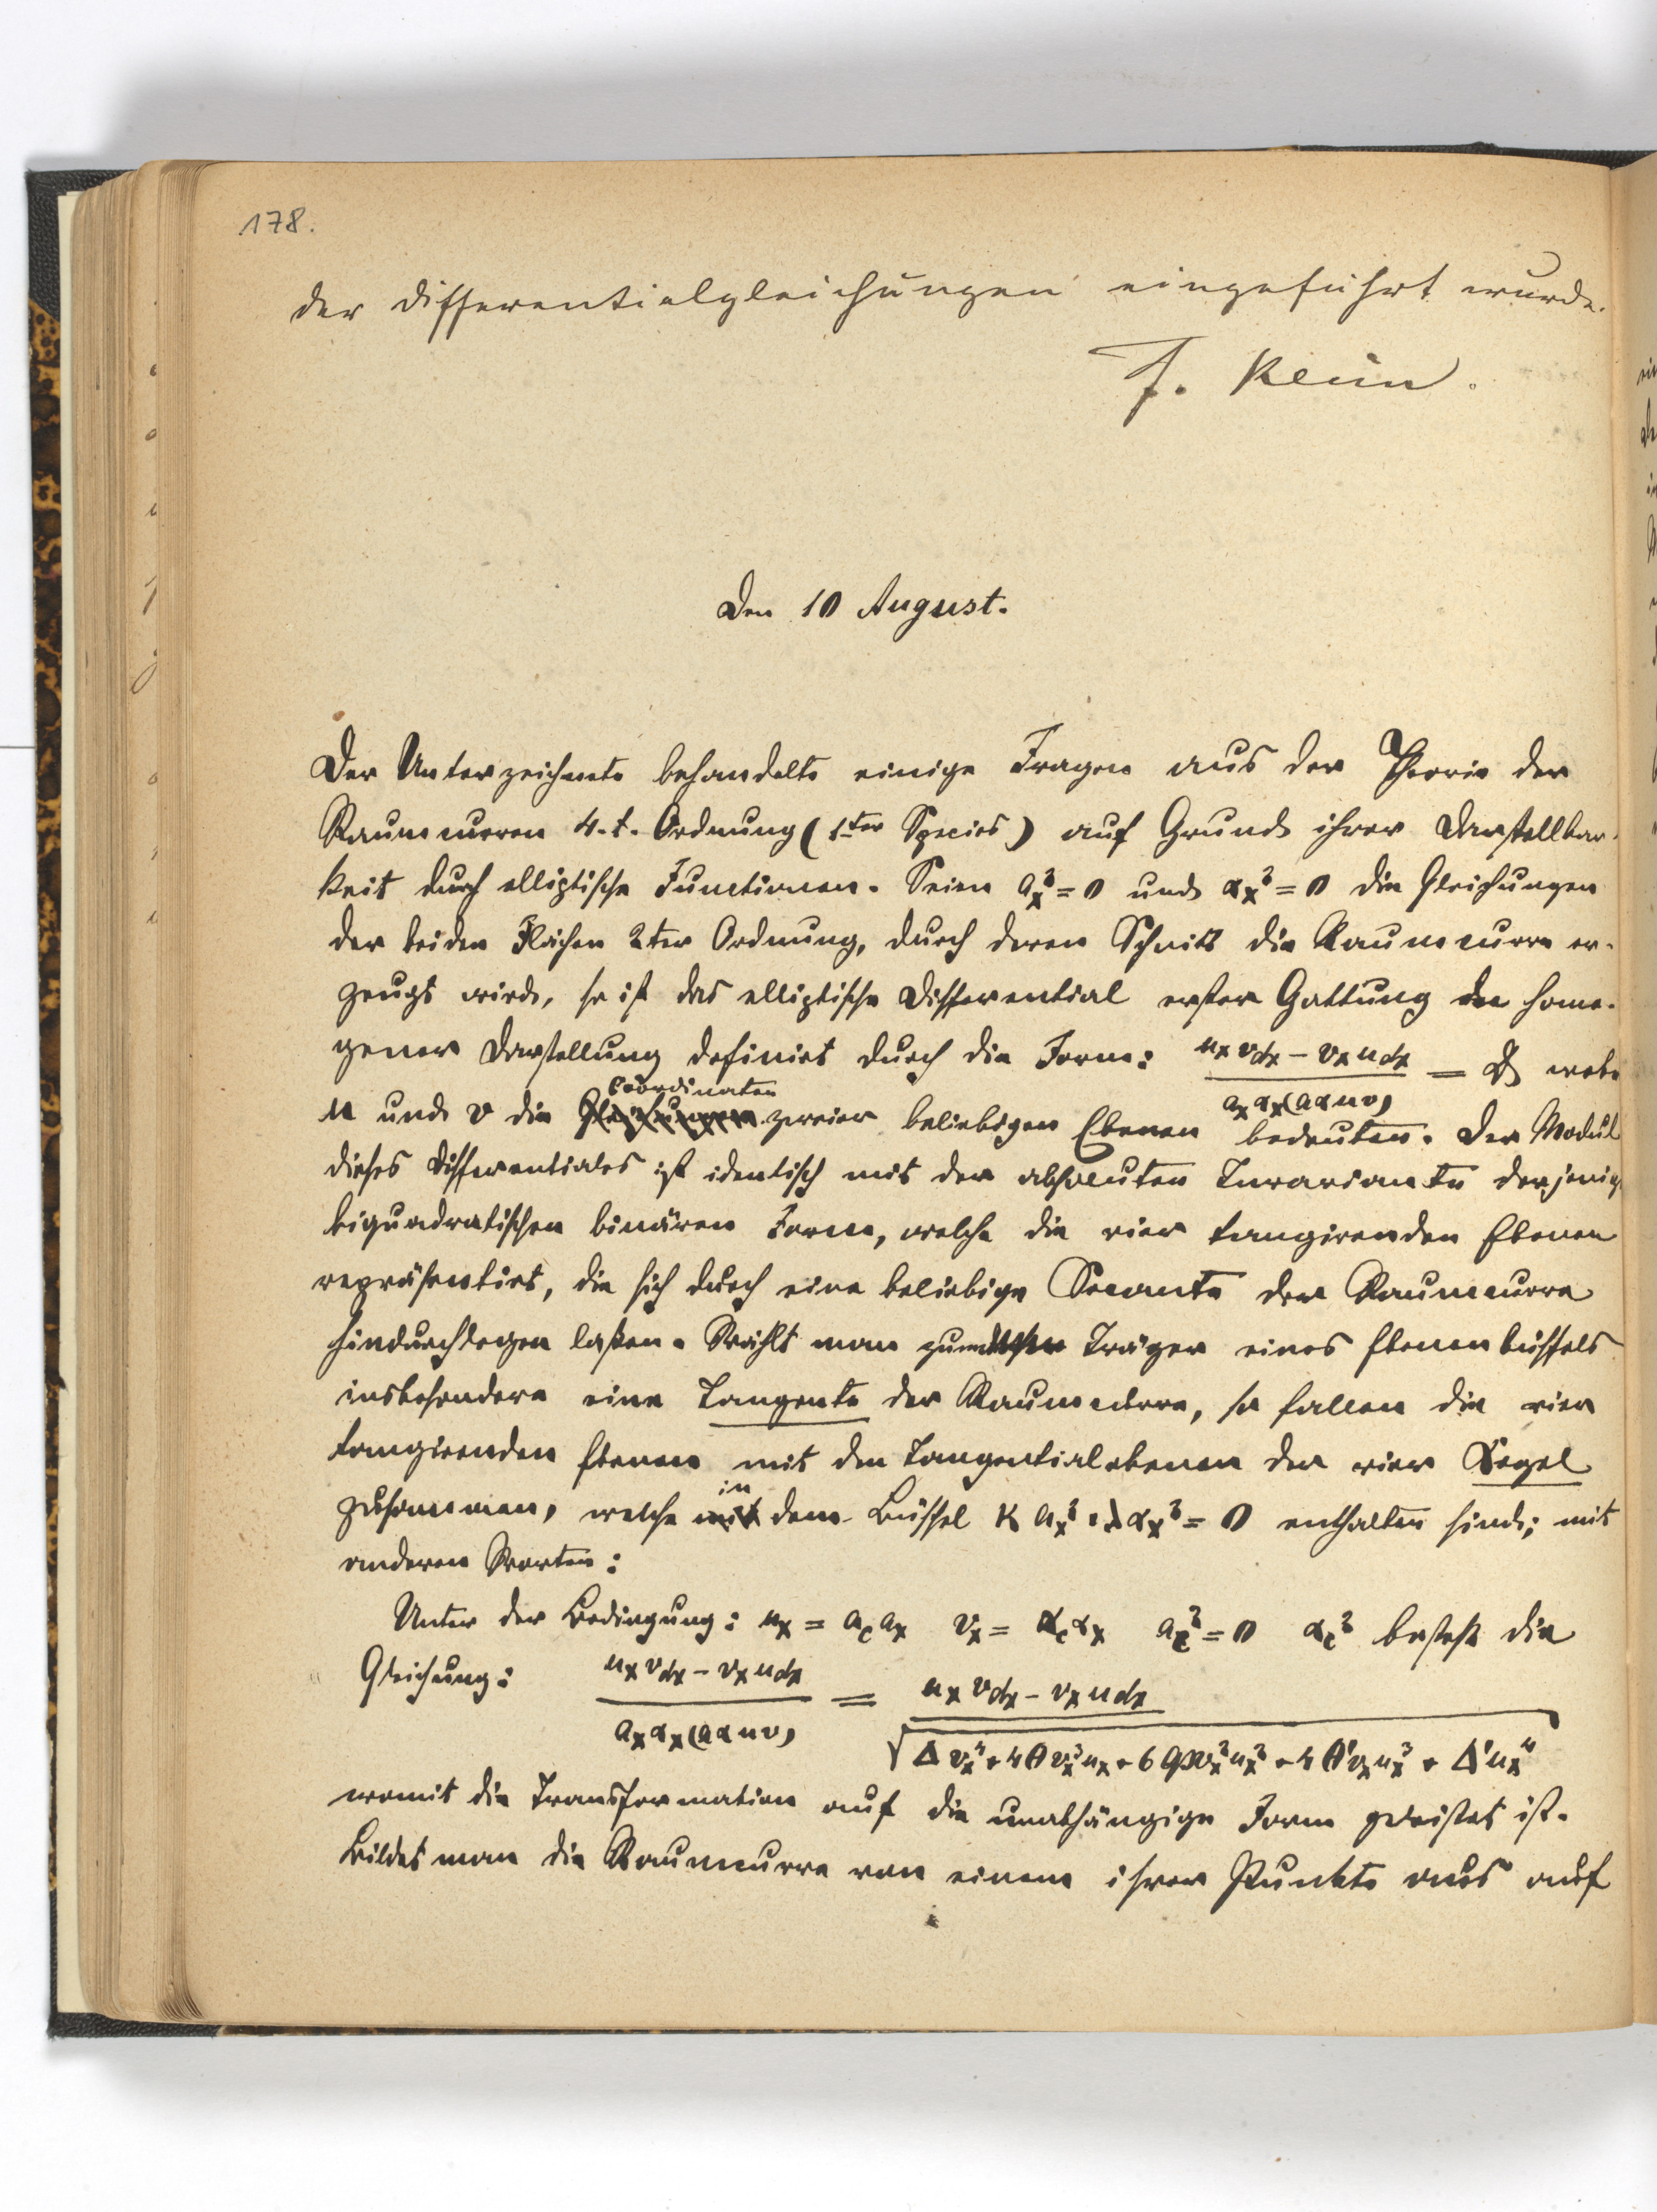 178.
der Differentialgleichungen eingeführt wurde.
F. Klein.
Den 10 August.
Der Unterzeichnete behandelte einige Fragen aus der Theorie der
Raumcurven 4.t. Ordnung (1ter Species) auf Grund ihrer Darstellbar-
keit durch elliptische Functionen. Seien a_x^2 = 0 und α_x^2 = 0 die Gleichungen
der beiden Flächen 2ter Ordnung, durch deren Schnitt die Raumcurve er-
zeugt wird, so ist das elliptische Differential erster Gattung in homo-
gener Darstellung definirt durch die Form: (u_x v_dx − v_x u_dx) / (a_x α_x (a α u v)) = wobei
Coordinaten
u und v die Gleichungen zweier beliebigen Ebenen bedeuten. Der Modul
dieses Differentiales ist identisch mit der absoluten Invariante derjenig
biquadratischen binären Form, welche die vier tangirenden Ebenen
repräsentirt, die sich durch eine beliebige Secante der Raumcurve
hindurchlegen laßen. Wählt man zum Träger eines Ebenenbüschels
insbesondere eine Tangente der Raumcurve, so fallen die vier
tangirenden Ebenen mit den Tangentialebenen der vier Kegel
in
zusammen, welche mit dem Büschel κ a_x^2 + λ α_x^2 = 0 enthalten sind; mit
anderen Worten:
Unter der Bedingung: u_x = a_c a_x v_x = α_c α_x a_c^2 = 0 α_c^2 besteht die
Gleichung: (u_x v_dx − v_x u_dx) / (a_x α_x (a α u v)) = (u_x v_dx − v_x u_dx) / √(Δ v_x^4 + 4 Θ v_x^3 u_x + 6 φ v_x^2 u_x^2 + 4 Θ' v_x u_x^3 + Δ' u_x^4)
womit die Transformation auf die unabhängige Form geleistet ist.
Bildet man die Raumcurve von einem ihrer Punkte aus auf